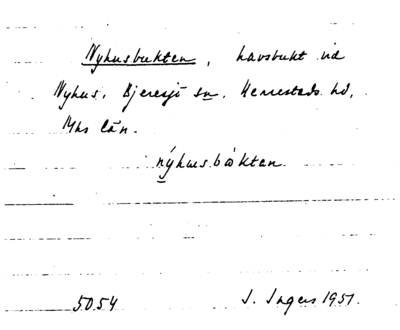 Nyhusbukten, havsbukt vid
Nyhus, Bjeresjö sn. Herrestads hd,
Mhs län.
nýhusbåkten.
5054 J. Ingers 1951.